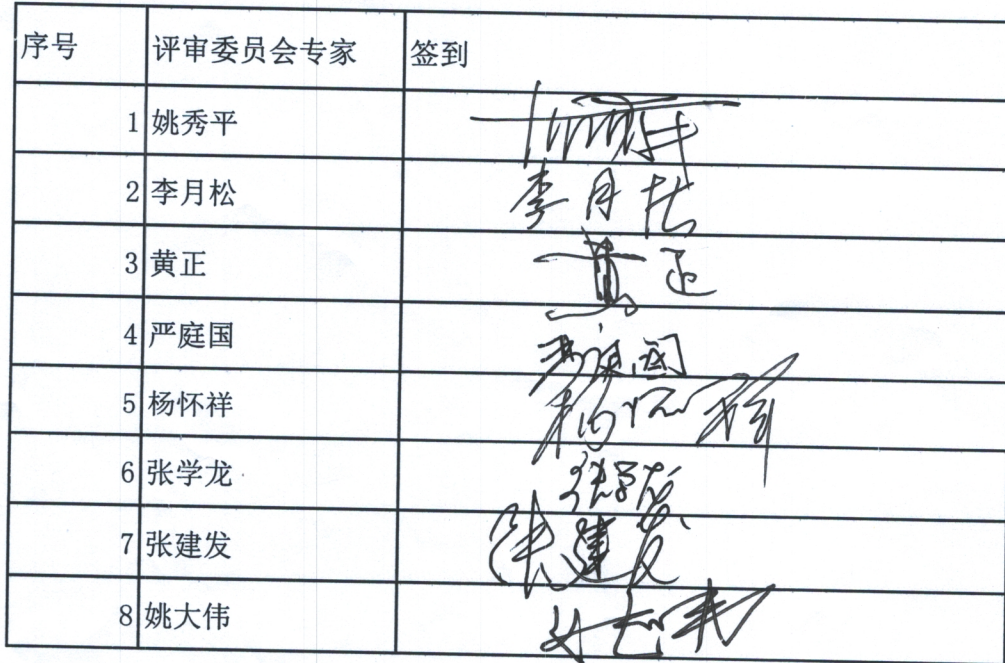 序号 评审委员会专家 签到
1 姚秀平
2 李月松 李月松
3 黄正 黄正
4 严庭国 严庭国
5 杨怀祥 杨怀祥
6 张学龙 张学龙
7 张建发 张建发
8 姚大伟